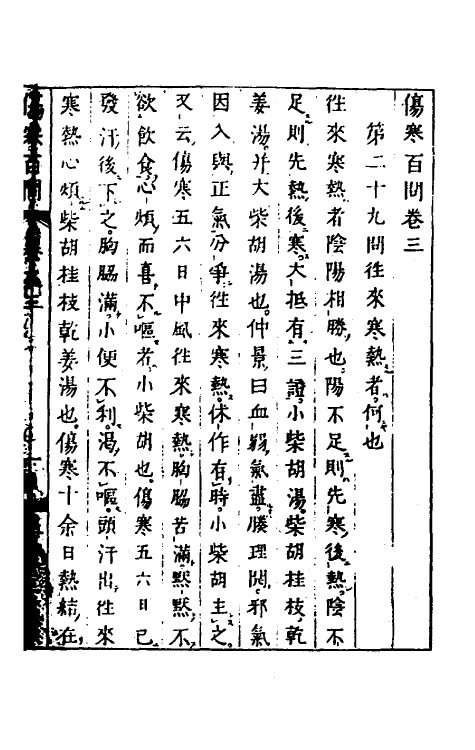 傷寒百問卷三
第二十九問往來寒熱者何也
往來寒熱者陰陽相勝也陽不足則先寒後熱陰不
足則先熱後寒大抵有三證小柴胡湯柴胡桂枝乾
姜湯并大柴胡湯也仲景曰血弱氣盡腠理開邪氣
因入與正氣分爭往來寒熱休作有時小柴胡主之
又云傷寒五六日中風往來寒熱胸脇苦滿黙黙不
欲飲食心煩而喜不嘔者小柴胡也傷寒五六日已
發汗後下之胸脇滿小便不利渴不嘔頭汗出往來
寒熱心煩柴胡桂枝乾姜湯也傷寒十余日熱結在
傷寒百問